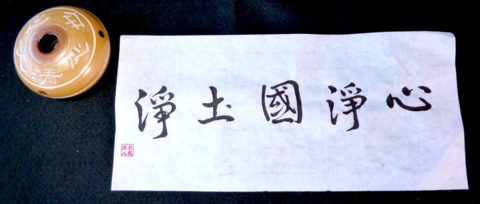 心淨國土淨
清